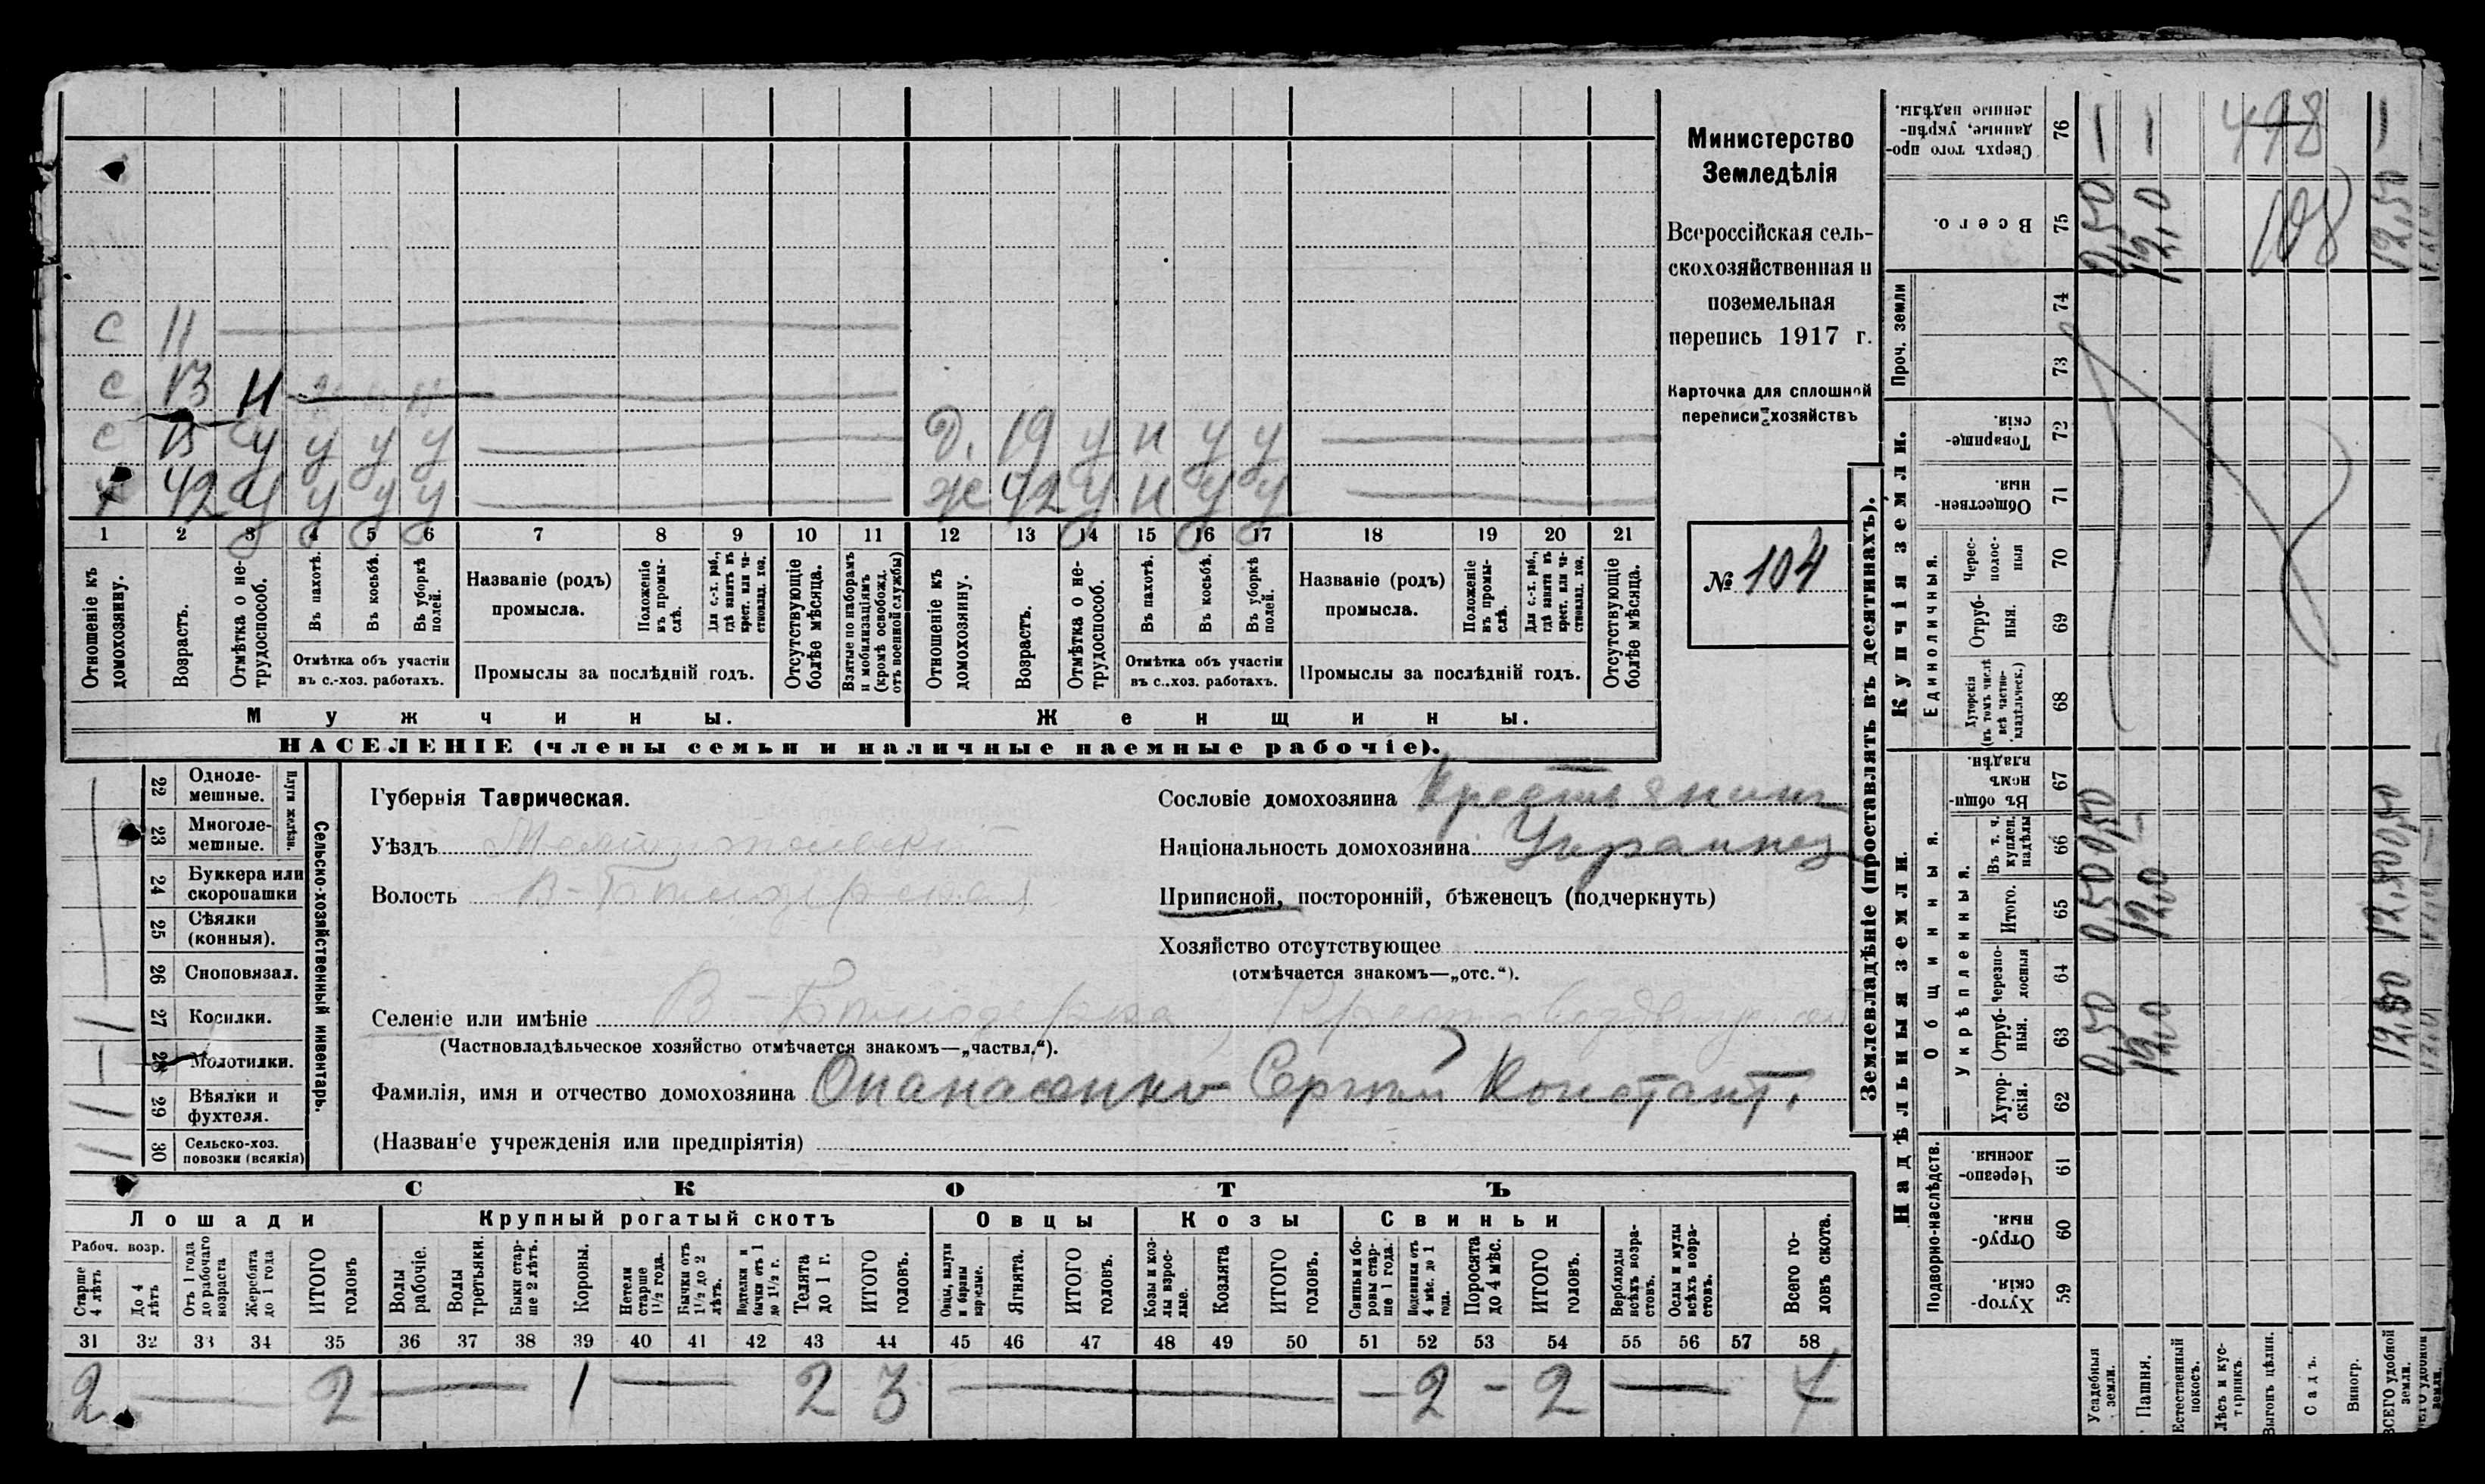 С 11
С 13 Н
С 15 У У У У
Х 42 У У У У
Д. 19 У Н У У
Ж 42 У Н У У
1 2 3 4 5 6 7 8 9 10 11 12 13 14 15 16 17 18 19 20 21
Отношеніе къ домохозяину.
Возрастъ.
Отмѣтка о не-трудоспособ.
Въ пахотѣ.
Въ косьбѣ.
Въ уборкѣ полей.
Отмѣтка объ участіи
въ с.-хоз. работахъ.
Названіе (родъ)
промысла.
Положеніе въ промы-слѣ.
Для с.-х. раб., гдѣ занятъ въ крест. или ча-стновлад. хоз.
Промыслы за послѣдній годъ.
Отсутствующіе болѣе мѣсяца.
Взятые по наборамъ и мобилизаціямъ (кромѣ освобожд. отъ военной службы)
Отношеніе къ домохозяину.
Возрастъ.
Отмѣтка о не-трудоспособ.
Въ пахотѣ.
Въ косьбѣ.
Въ уборкѣ полей.
Отмѣтка объ участіи
въ с..хоз. работахъ.
Названіе (родъ)
промысла.
Положеніе въ промы-слѣ.
Для с.-х. раб., гдѣ занята въ крест. или ча-стновлад. хоз.
Промыслы за послѣдній годъ.
Отсутствующіе болѣе мѣсяца.
Мужчины.
Женщины.
НАСЕЛЕНІЕ (члены семьи и наличные наемные рабочіе).
Министерство
Земледѣлія
Всероссійская сель-
скохозяйственная и
поземельная
перепись 1917 г.
Карточка для сплошной
переписи хозяйствъ
№ 104
Сельско-хозяйственный инвентарь.
Плуги желѣзн.
22 Одноле-мешные.
23 Многоле-мешные.
24 Буккера или скоропашки
25 Сѣялки (конныя).
26 Сноповязал.
27 Косилки.
28 Молотилки.
29 Вѣялки и фухтеля.
30 Сельско-хоз. повозки (всякія)
Губернія Таврическая.
Уѣздъ
Волость В-Бѣлозерская
Сословіе домохозяина Крестьянинъ
Національность домохозяина Украинец
Приписной, посторонній, бѣженецъ (подчеркнуть)
Хозяйство отсутствующее
(отмѣчается знакомъ—„отс.“).
Селеніе или имѣніе В-Бѣлозерка
(Частновладѣльческое хозяйство отмѣчается знакомъ—„частвл.“).
Фамилія, имя и отчество домохозяина Опанасенко Сергѣй Констант.
(Названіе учрежденія или предпріятія)
СКОТЪ
Лошади
Рабоч. возр.
Старше 4 лѣтъ
До 4 лѣтъ
Отъ 1 года до рабочаго возраста
Жеребята до 1 года
ИТОГО головъ
Крупный рогатый скотъ
Волы рабочіе.
Волы третьяки.
Быки стар-ше 2 лѣтъ.
Коровы.
Нетели старше 1½ года.
Бычки отъ 1½ до 2 лѣтъ.
Подтелки и бычки отъ 1 до 1½ г.
Телята до 1 г.
ИТОГО головъ.
Овцы
Овцы, валухи и бараны взрослые.
Ягнята.
ИТОГО головъ.
Козы
Козы и коз-лы взрос-лые.
Козлята
ИТОГО головъ.
Свиньи
Свиньи и бо-ровы стар-ше 1 года.
Подсвинки отъ 4 мѣс. до 1 года.
Поросята до 4 мѣс.
ИТОГО головъ.
Верблюды всѣхъ возра-стовъ.
Ослы и мулы всѣхъ возра-стовъ.
Всего го-ловъ скота.
31 32 33 34 35 36 37 38 39 40 41 42 43 44 45 46 47 48 49 50 51 52 53 54 55 56 57 58
2 — 2 — 1 — 2 3 — - 2 - 2 —
Землевладѣніе (проставлять въ десятинахъ).
Купчія земли.
Сверхъ того про-данные, укрѣп-ленные надѣлы. 76
Всего. 75
Проч. земли 74 73
Товарище-скія. 72
Обществен-ныя. 71
Единоличныя.
Черес-полос-ныя 70
Отруб-ныя. 69
Хуторскія (въ томъ числѣ всѣ частно-владѣльческ.) 68
Надѣльныя земли.
Общинныя.
Въ общин-номъ владѣн. 67
Укрѣпленныя.
Въ т. ч. куплен. надѣлы 66
Итого. 65
Черезпо-лосныя 64
Отруб-ныя. 63
Хутор-скія. 62
Подворно-наслѣдств.
Черезпо-лосныя 61
Отруб-ныя. 60
Хутор-скія. 59
Усадебныя земли.
Пашня.
Естественный покосъ.
Лѣсъ и кус-тарникъ.
Выгонъ цѣлин.
Садъ.
Виногр.
ВСЕГО удобной земли.
498
108
0,50 12,0 12,50
0,50 12,0 12,50
0,50 12,0 12,50